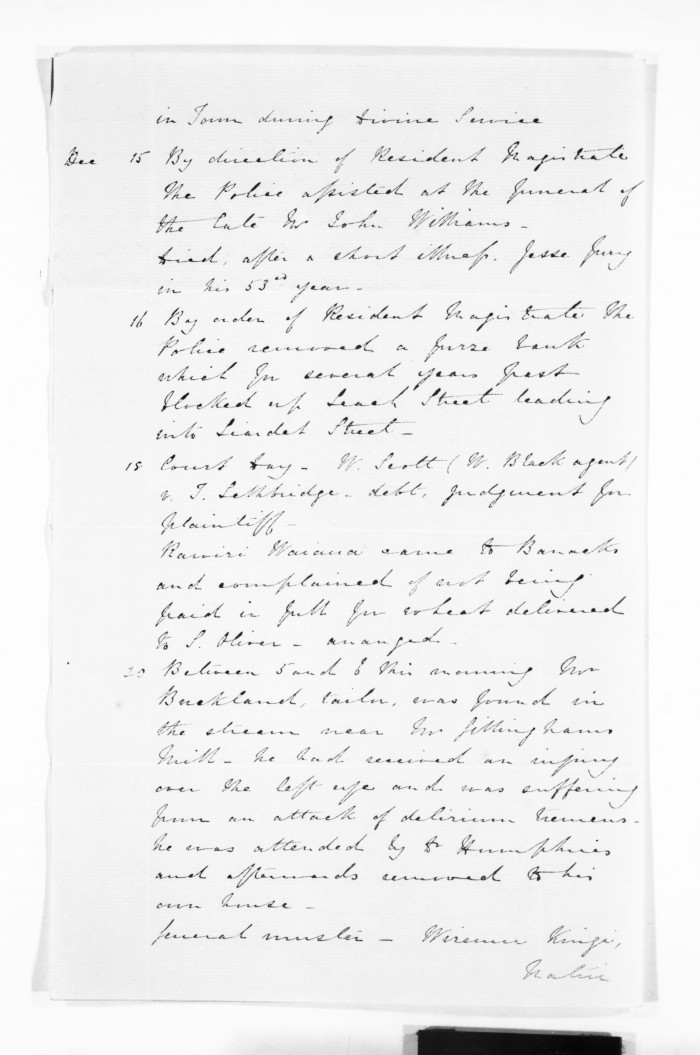 in Town during Divine Service
Dec 15 By direction of Resident Magistrate
the Police assisted at the funeral of
the late Mr John Williams -
Died, after a short illness, Jesse
in his 53rd year -
16 By order of Resident Magistrate the
Police removed a furze bank
which for several years past
blocked up Leach Street leading
into Liardet Street -
18 Court Day - W. Scott (W. Black agent)
v. T. Lethbridge - debt, judgment for
plaintiff -
Rawiri Waiaua came to Barracks
and complained of not being
paid in full for wheat delivered
to S. Oliver - arranged -
20 Between 5 and 6 this morning Mr
Buckland, tailor, was found in
the stream near Mr Gillinghams
Mill - he had received an injury
over the left eye and was suffering
from an attack of delirium tremens -
he was attended by Dr Humphries
and afterwards removed to his
own house -
General muster - Wiremu Kingi,